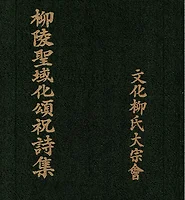 柳陵聖域化頌祝詩集
文化柳氏大宗會